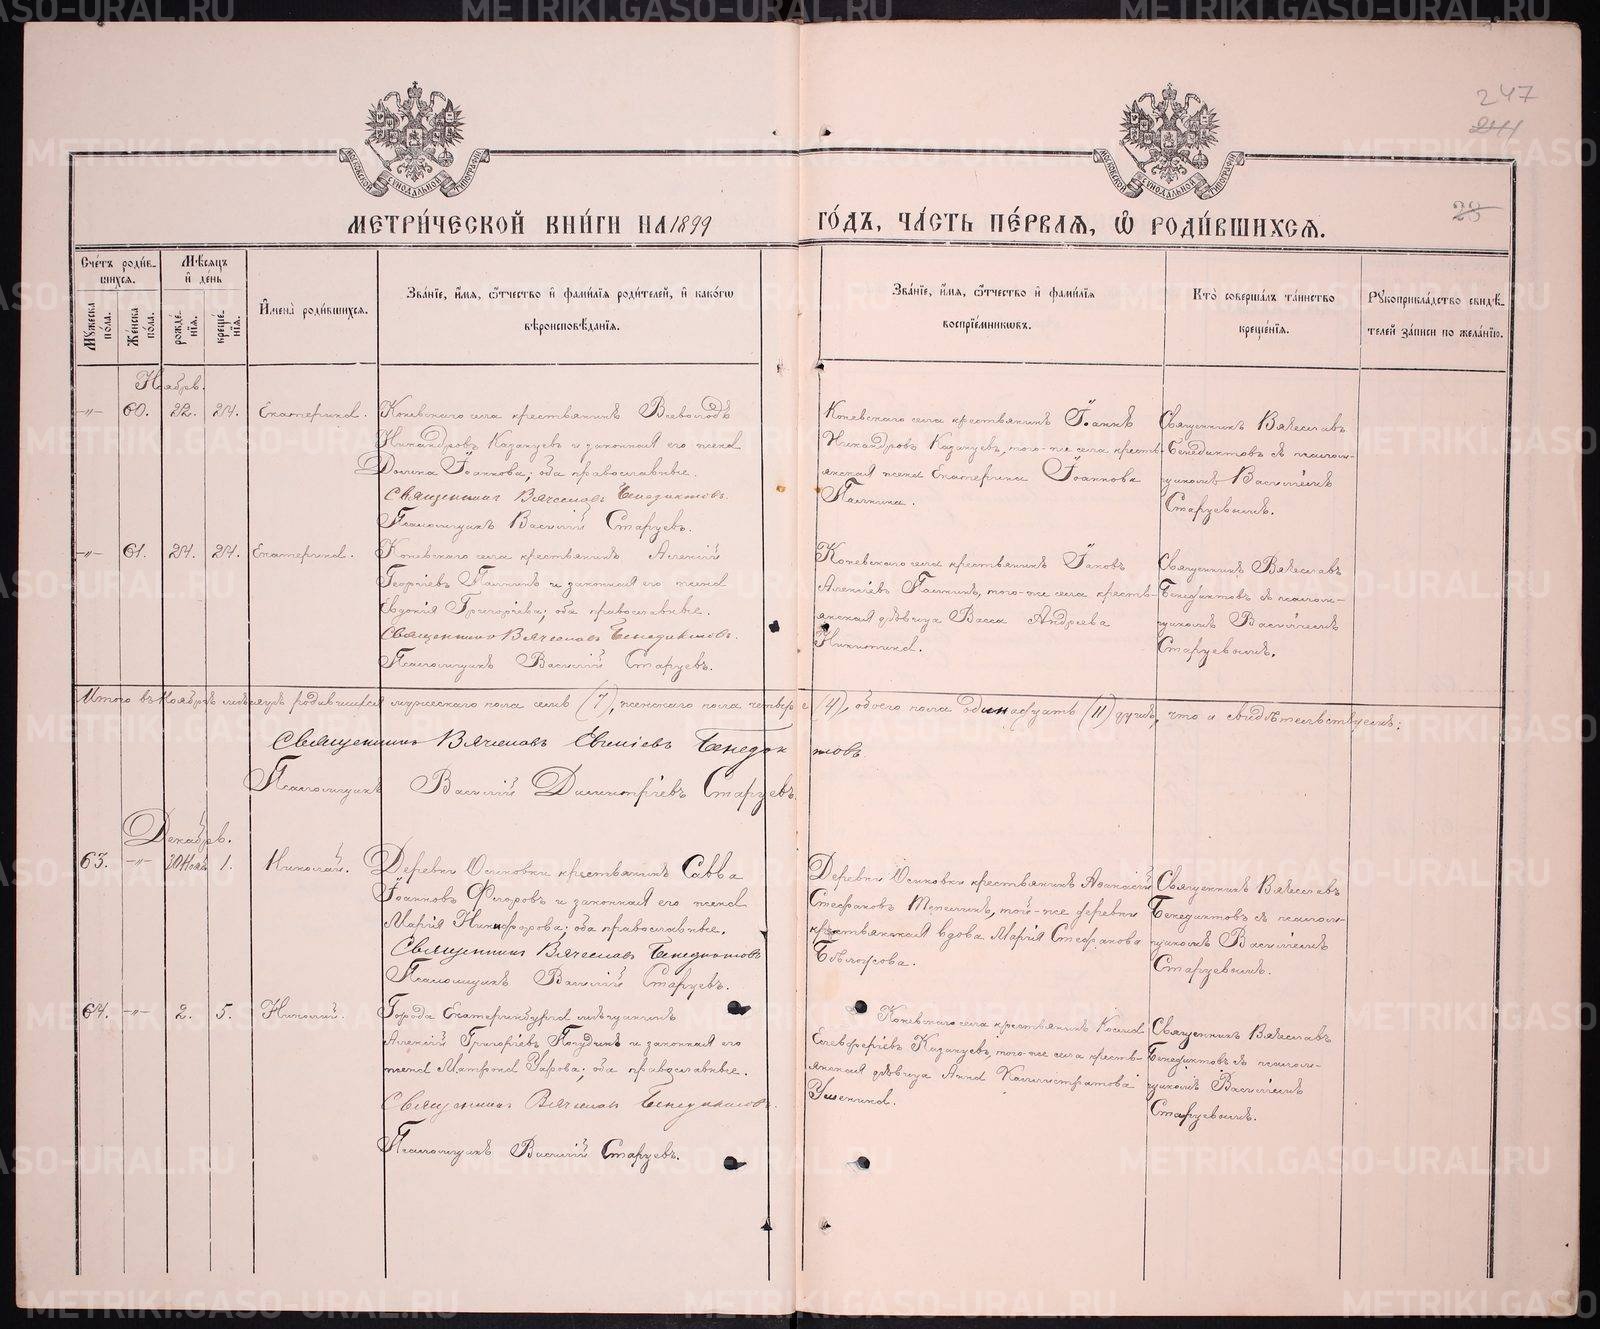 247
244
23
МОСКОВСКОЙ СѴНОДАЛЬНОЙ ТИПОГРАФІИ
МОСКОВСКОЙ СѴНОДАЛЬНОЙ ТИПОГРАФІИ
МЕТРИ́ЧЕСКОЙ КНИ́ГИ НА 1899 ГО́ДЪ, ЧА́СТЬ ПЕ́РВАЯ, Ѡ҆ РОДИ́ВШИХСЯ.
Сче́тъ роди́вшихся.
Мꙋ́жеска по́ла.
Же́нска по́ла.
Мѣ́сяцъ и҆ де́нь
рожде́нія.
креще́нія.
И҆мена̀ роди́вшихся.
Зва́ніе, и҆́мя, ѻ҆́тчество и҆ фами́лія роди́телей, и҆ како́гѡ
вѣроисповѣ́данія.
Зва́ніе, и҆́мя, ѻ҆́тчество и҆ фами́лія
воспріе́мникѡвъ.
Кто̀ соверша́лъ та́инство
креще́нія.
Рꙋкоприкла́дство свидѣ́-
телей за́писи по жела́нію.
Ноябрь.
-"- 60. 22. 24. Екатерина.
Коневскаго села крестьянинъ Всеволодъ
Никандровъ Казанцевъ и законная его жена
Домна Іоаннова; оба православные.
Священникъ Вячеславъ Бенедиктовъ.
Псаломщикъ Василій Старцевъ.
Коневскаго села крестьянинъ Іоаннъ
Никандровъ Казанцевъ, того-же села кресть-
янская жена Екатерина Іоаннова
Палкина.
Священникъ Вячеславъ
Бенедиктовъ съ псалом-
щикомъ Василіемъ
Старцевымъ.
-"- 61. 24. 24. Екатерина.
Коневскаго села крестьянинъ Алексій
Георгіевъ Палкинъ и законная его жена
Евдокія Григоріева; оба православные.
Священникъ Вячеславъ Бенедиктовъ.
Псаломщикъ Василій Старцевъ.
Коневскаго села крестьянинъ Іаковъ
Алексіевъ Палкинъ, того-же села кресть-
янская дѣвица Васса Андреева
Никитина.
Священникъ Вячеславъ
Бенедиктовъ съ псалом-
щикомъ Василіемъ
Старцевымъ.
Итого въ Ноябрѣ мѣсяцѣ родившихся мужескаго пола семь (7), женскаго пола четыре (4), обоего пола одинадцать (11) душъ, что и свидѣтельствуемъ:
Священникъ Вячеславъ Евгеніевъ Бенедиктовъ
Псаломщикъ Василій Димитріевъ Старцевъ.
Декабрь.
63. -"- 30 Нояб. 1. Николай.
Деревни Осиновки крестьянинъ Савва
Іоанновъ Флоровъ и законная его жена
Марія Никифорова; оба православные.
Священникъ Вячеславъ Бенедиктовъ
Псаломщикъ Василій Старцевъ.
Деревни Осиновки крестьянинъ Аѳанасій
Стефановъ, той-же деревни
крестьянская вдова Марія Стефанова
Бѣлоусова.
Священникъ Вячеславъ
Бенедиктовъ съ псалом-
щикомъ Василіемъ
Старцевымъ.
64. -"- 2. 5. Николай.
Города Екатеринбурга мѣщанинъ
Алексій Григоріевъ Погудинъ и законная его
жена Матрона Уарова; оба православные.
Священникъ Вячеславъ Бенедиктовъ.
Псаломщикъ Василій Старцевъ.
Коневскаго села крестьянинъ Косма
Елевферіевъ Казанцевъ, того-же села кресть-
янская дѣвица Анна Каллистратова
Ушенина.
Священникъ Вячеславъ
Бенедиктовъ съ псалом-
щикомъ Василіемъ
Старцевымъ.
METRIKI.GASO-URAL.RU